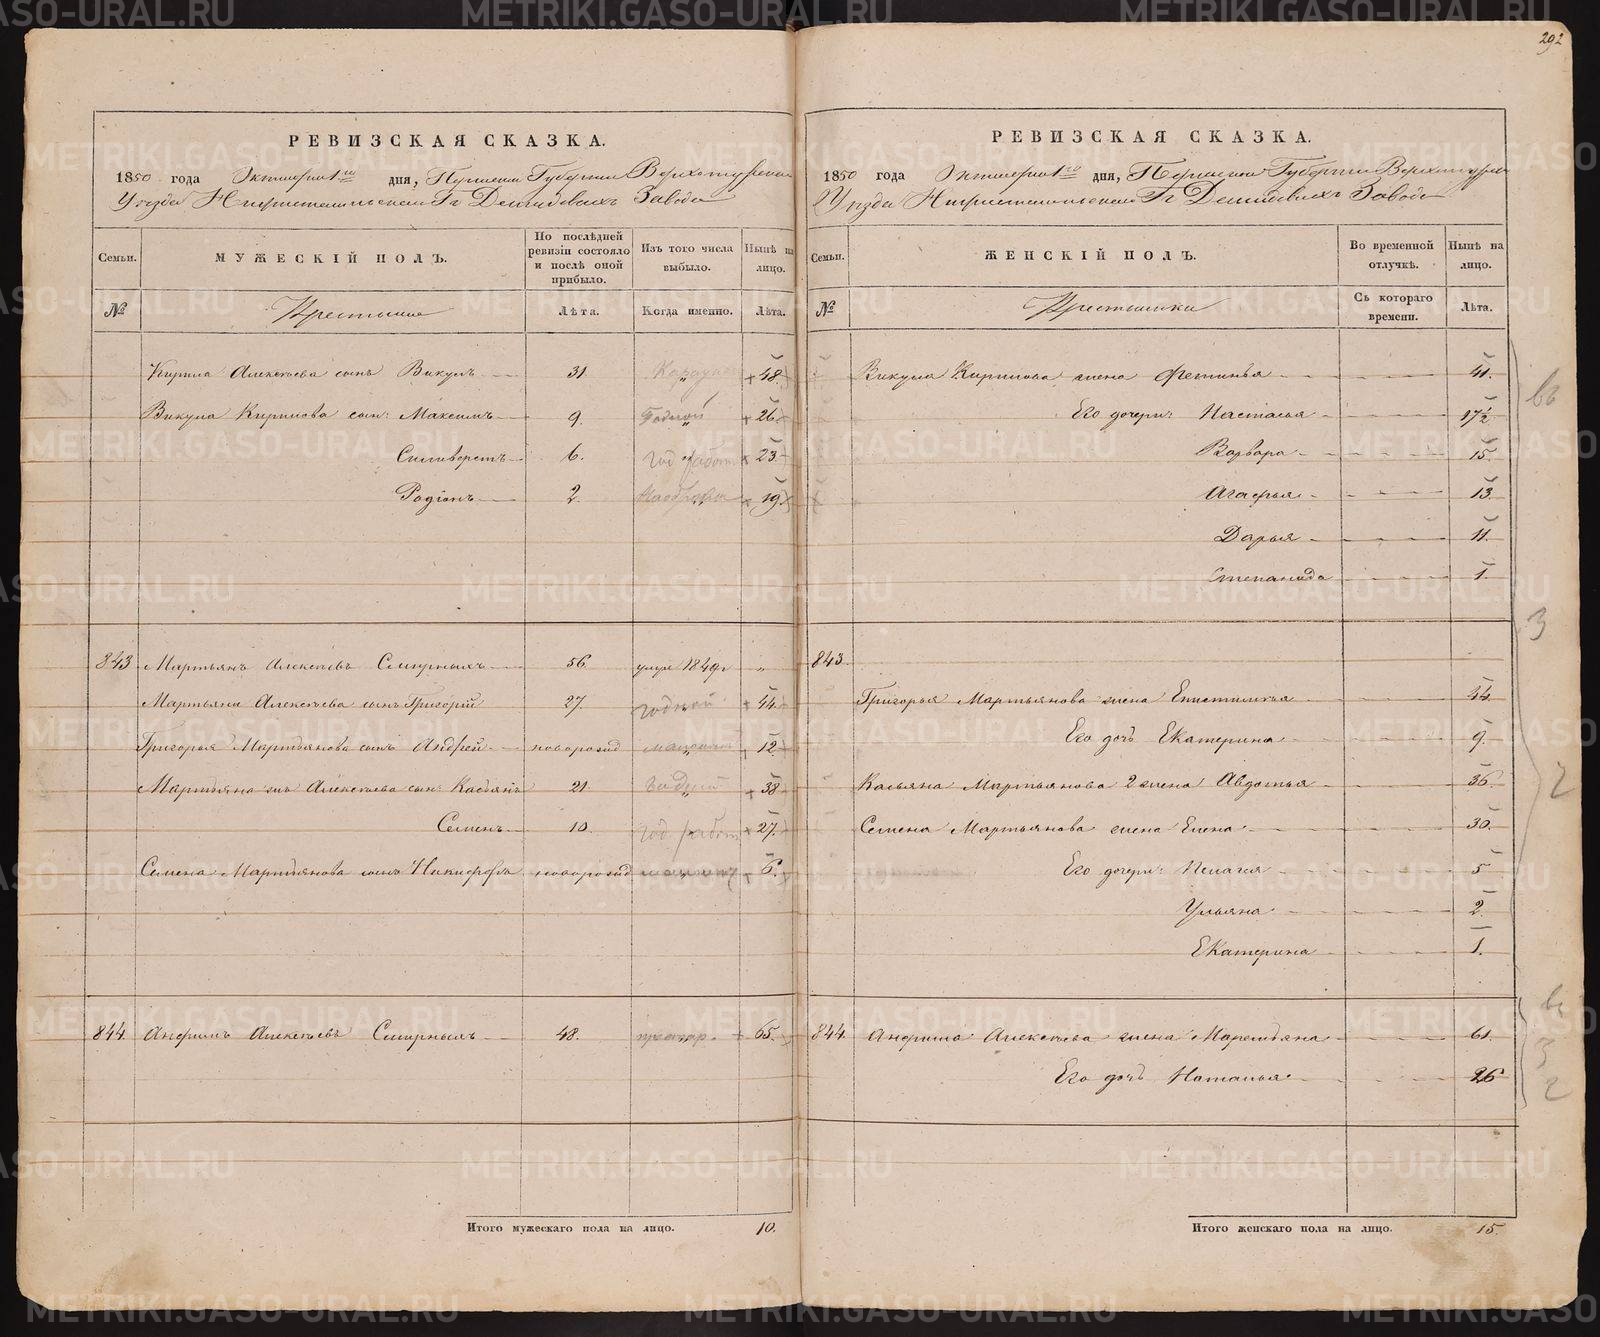 292
РЕВИЗСКАЯ СКАЗКА.
1850 года Октября 1го дня, Пермской Губернии Верхотурскаго
Уезда Нижнетагильскаго Гг Демидовых Завода
Семьи. МУЖЕСКІЙ ПОЛЪ. По послѣдней ревизіи состояло и послѣ оной прибыло. Изъ того числа выбыло. Нынѣ на лицо.
№ Крестьяне Лѣта. Когда именно. Лѣта.
Кирила Алексѣева сынъ Викулъ 31. 48.
Викула Кирилова сын: Максимъ 9. Годной 26.
Силиверстъ 6. год работ 23.
Родіонъ 2. 19.
843 Мартьянъ Алексѣевъ Смирныхъ 56. умре 1849г „
Мартьяна Алексѣева сынъ Григорій 27. годной 44.
Григорья Мартьянова сынъ Андрей новорожд 12.
Мартьяна Алексѣева сын: Касьянъ 21. Годной 38
Семенъ 10. год работ 27.
Семена Мартьянова сынъ Никифоръ новорожд 6.
844. Анфимъ Алексѣевъ Смирныхъ 48. престар. 65.
Итого мужескаго пола на лицо. 10.
РЕВИЗСКАЯ СКАЗКА.
1850 года Октября 1го дня, Пермской Губернии Верхотурскаго
Уезда Нижнетагильскаго Гг Демидовых Завода
Семьи. ЖЕНСКІЙ ПОЛЪ. Во временной отлучкѣ. Нынѣ на лицо.
№ Крестьянки Съ котораго времени. Лѣта.
Викула Кирилова жена Фетинья 41.
Его дочери: Настасья 17½
Варвара 15.
Агафья 13.
Дарья 11.
Степанида 1.
843.
Григорья Мартьянова жена Епистимья 44.
Его дочь Екатерина 9.
Касьяна Мартьянова 2 жена Авдотья 36.
Семена Мартьянова жена Елена 30.
Его дочери: Пелагея 5
Ульяна 2.
Екатерина 1.
844. Анфима Алексѣева жена Маремьяна 61.
Его дочь Наталья 26
Итого женскаго пола на лицо. 15.
METRIKI.GASO-URAL.RU